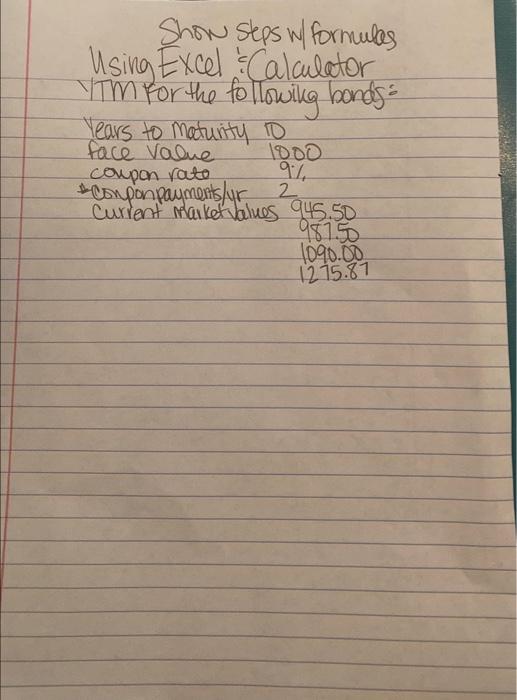 Show steps w/ formulas
Using Excel & Calculator
YTM for the following bonds:
Years to Maturity 10
face value 1000
coupon rate 9%
*Coupon payments/yr 2
Current Market Values 945.50
987.50
1090.00
1275.87